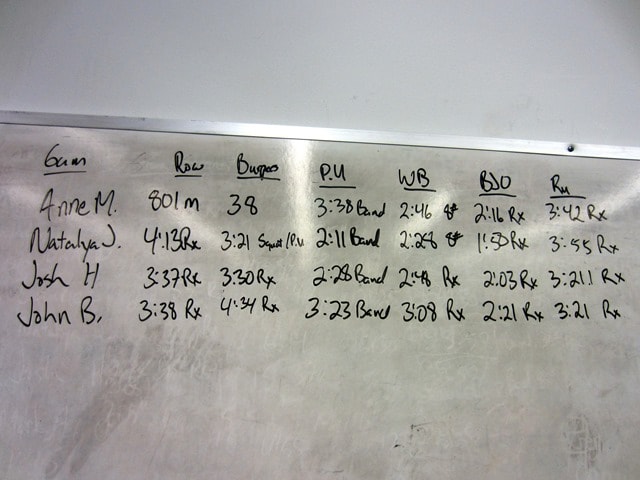 6am Row Burpees P.U WB BJO Run
Anne M. 801m 38 3:38 Band 2:46 8# 2:16 Rx 3:42 Rx
Natalya J. 4:13 Rx 3:21 Squat/P.U 2:11 Band 2:28 8# 1:50 Rx 3:55 Rx
Josh H 3:37 Rx 3:30 Rx 2:28 Band 2:48 Rx 2:03 Rx 3:21.1 Rx
John B. 3:38 Rx 4:34 Rx 3:23 Band 3:08 Rx 2:21 Rx 3:21 Rx